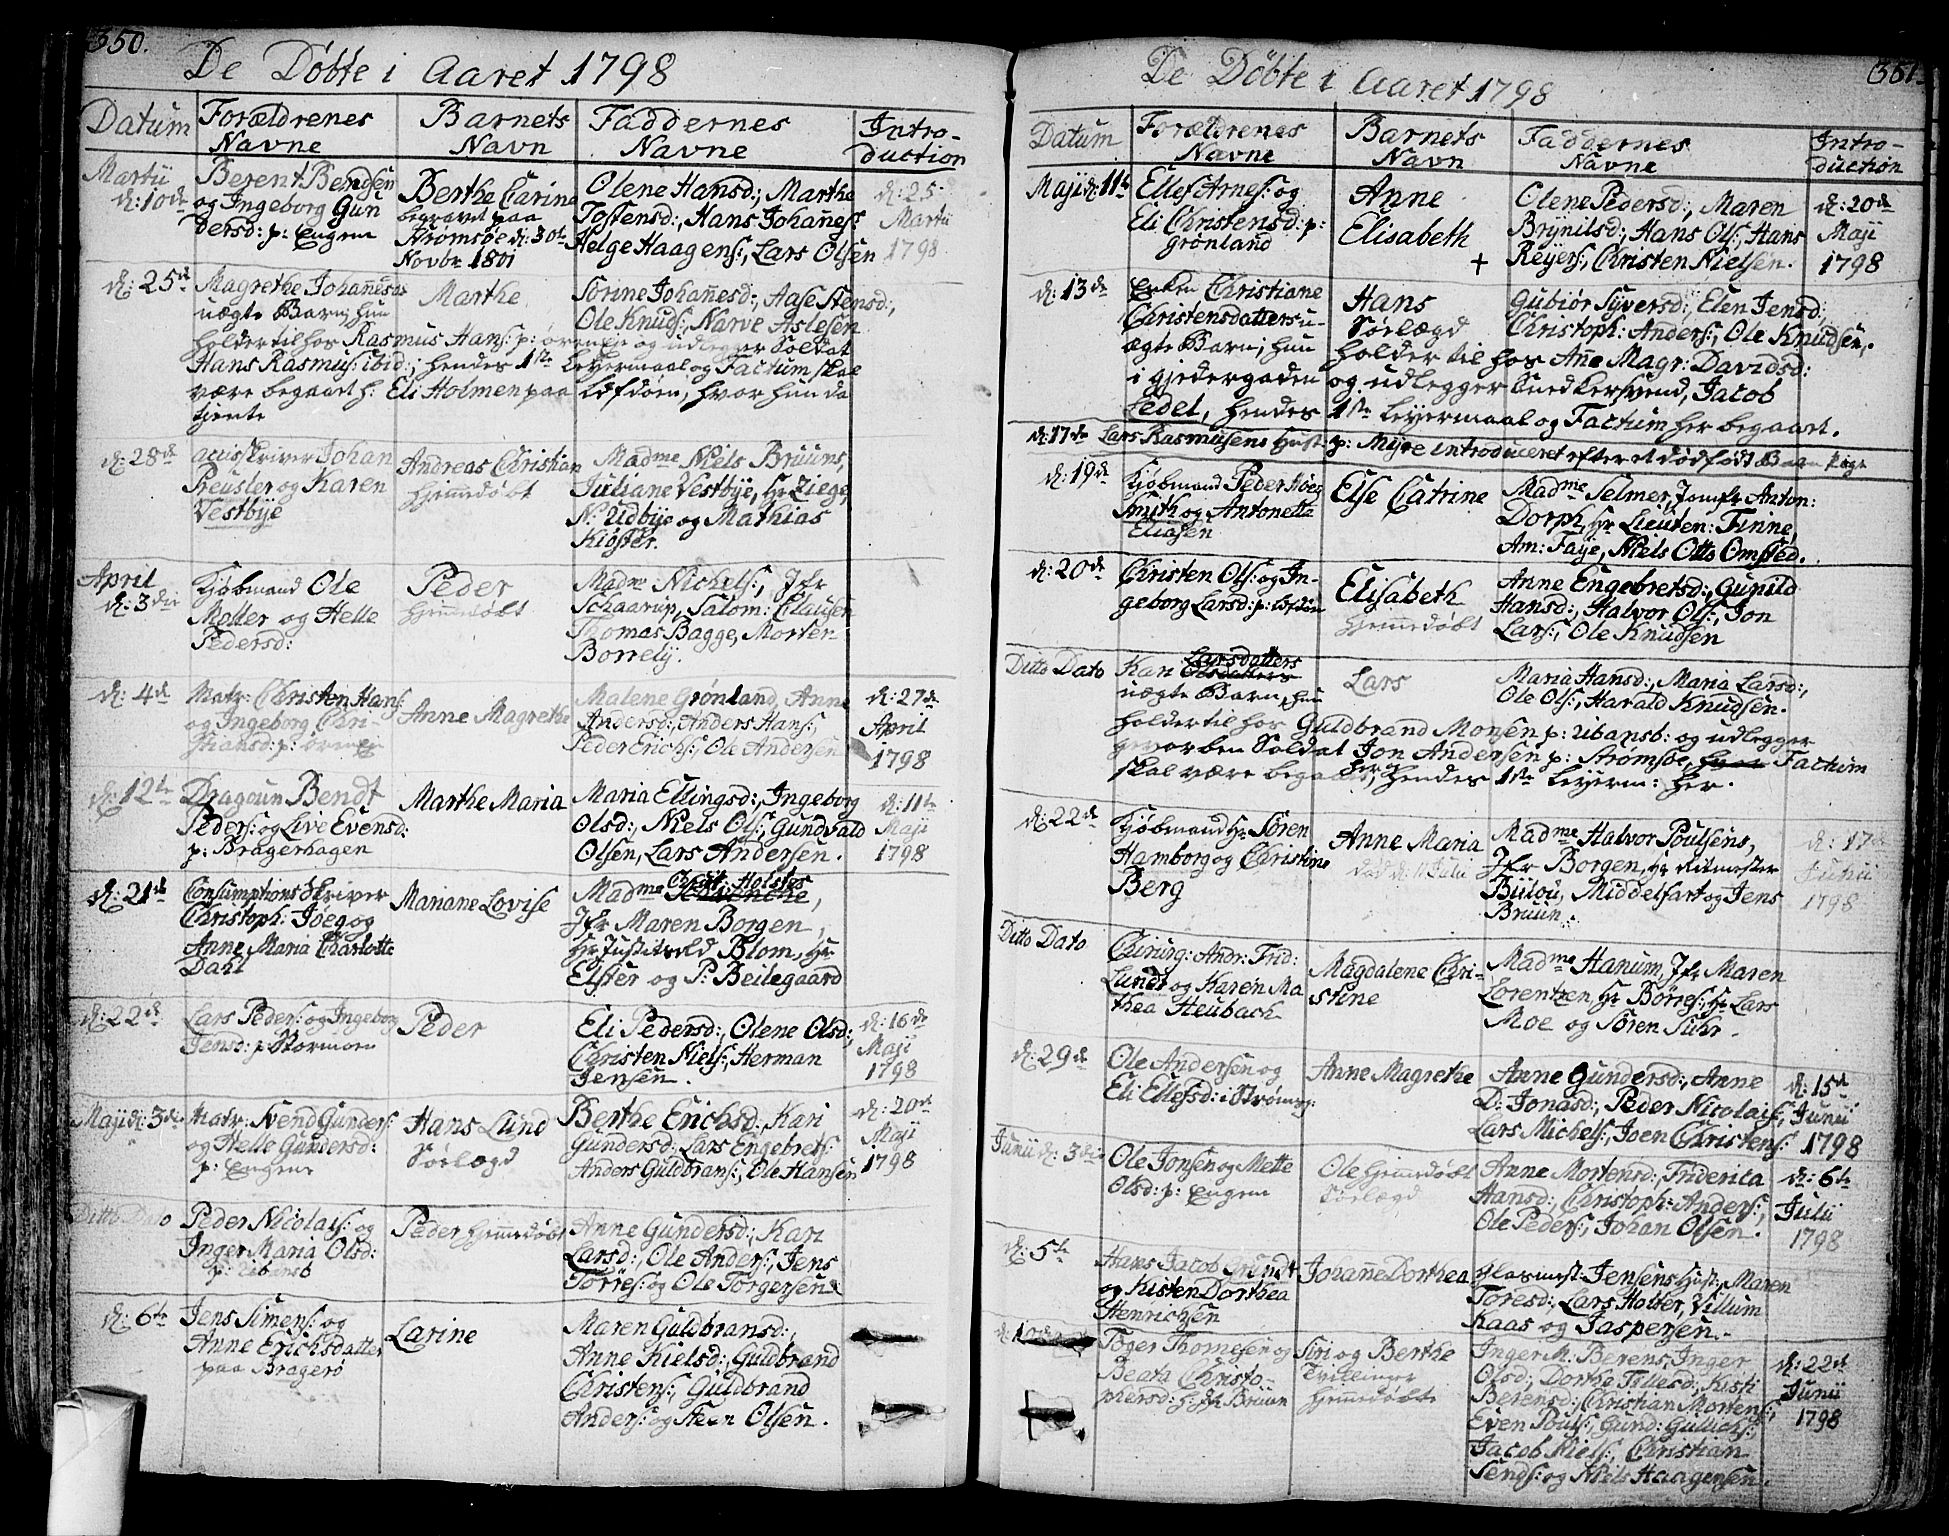 350.
De Döbte i Aaret 1798
Datum
Forældrenes
Navne
Barnets
Navn
Faddernes
Navne
Intro-
duction
Martii
d: 10de
Berent Bendsen
og Ingeborg Gun
dersd: p: Engene
Berthe Carine
begravet paa
Strømsøe d: 30te
Novbr 1801
Olene Hansd:, Marthe
Tostensd:, Hans Johanes:
Helge Haagens:, Lars Olsen
d: 25
Martii
1798
d: 25de
Magrethe Johanesd
uægte Barn; hun
Marthe
Sörine Johanesd:, Aase Stensd:,
Ole Knuds:, Narve Aslesen
holder til hos Rasmus Hans: p: og udlegger Soldat
Hans Rasmus: ibid:; hendes 1ste Leyermaal og Factum skal
være begaaet h: Eli Holmen paa hvor hun da
tjente
d: 28de
accisskriver Johan
Preusler og Karen
Vestbÿe
Andreas Christian
hjemedöbt
Madme Niels Bruuns,
Juliane Vestbÿe, Hr Ziege,
N: Udbÿe og Mathias
Kiöster.
April
d: 3die
Kjöbmand Ole
Möller og Helle
Pedersd:
Peder
hjemedöbt
Madme Nichels:, Jfr
Schaarup, Salom: Clausen
Thomas Bagge, Morten
Borrely.
d: 4de
Matr: Christen Hans:
og Ingeborg Chri-
stiansd: p:
Anne Magrethe
Malene Grönland, Anne
Andersd:, Anders Hans:,
Peder Erichs:, Ole Andersen
d: 27de
April
1798
d: 12te
Dragoun Bendt
Peders: og Live Evensd:
p: Bragerhagen
Marthe Maria
Maria Ellingsd:, Ingeborg
Olsd:, Niels Ols:, Gundvald
Olsen, Lars Andersen.
d: 11te
Maji
1798
d: 21de
Consumptionsskriver
Christoph: Jöeg og
Anne Maria Charlotte
Dahl
Mariane Lovise
Madme Holstes,
Jfr Maren Borgen,
Hr Justitsrld Blom, Hr
Elster og P: Beilegaard
d: 22de
Lars Peders: og Ingeborg
Jensd: p:
Peder
Eli Pedersd:, Olene Olsd:,
Christen Niels:, Herman
Jensen.
d: 16de
Maji
1798
Maji d: 3die
Matr: Svend Gunders:
og Helle Gundersd:
p: Engene
Hans Lund
Sörlægd
Berthe Erichsd:, Kari
Gundersd:, Lars Engebrets:
Anders Guldbrans:, Ole Hansen
d: 20de
Maji
1798
Ditto Dato
Peder Nicolais: og
Inger Maria Olsd:
p:
Peder hjemedöbt
Anne Gundersd:, Kari
Larsd:, Ole Anders:, Jens
Törres: og Ole Torgersen
d: 6te
Jens Simens: og
Anne Erichsdatter
paa Bragerö
Larine
Maren Guldbransd:,
Anne Kielsd:, Guldbrand
Christens:, Guldbrand
Anders: og Steen Olsen.
351.
De Döbte i Aaret 1798
Datum
Forældrenes
Navne
Barnets
Navn
Faddernes
Navne
Intro-
duction
Maji d: 11te
Ellef Arnes: og
Eli Christensd: p:
grönland
Anne
Elisabeth
+
Olene Pedersd:, Maren
Brynilsd:, Hans Ols:, Hans
Reyers:, Christen Nielsen.
d: 20de
Maji
1798
d: 13de
Enken Christiane
Christensdatters u-
ægte Barn; hun
Hans
Sörlægd
Gubiör Syversd:, Elen Jensd:,
Christoph: Anders:, Ole Knudsen.
holder til hos Ane Magr: Davidsd:
i gjedergaden og udlegger Snedkersvend, Jacob
Fedel, hendes 1ste Leyermaal og Factum her begaaet.
d: 17de Lars Rasmusens Hust: p: Myre introduceret efter et dödfödt Barn
d: 19de
Kjöbmand Peder Höeg
Smith og Antonette
Eliasen
Else Catrine
Madme Selmer, Jomfr Anton:
Dorph, Hr Lieuten: Finne,
Am: Faye, Niels Otto Omsted.
d: 20de
Christen Ols: og In-
geborg Larsd: p:
Elisabeth
hjemedöbt
Anne Engebretsd:, Gunild
Hansd:, Halvor Ols:, Jon
Lars:, Ole Knudsen
Ditto Dato
Kari Larsdatters
uægte Barn, hun
Lars
Maria Hansd:, Maria Larsd:,
Ole Ols:, Harald Knudsen.
holder til hos Guldbrand Monsen p: og udlegger
gevorben Soldat Jon Andersen p: Strömsöe, Factum
skal være begaaet her, hendes 1ste Leyerm: her.
d: 22de
Kjöbmand Hr Sören
Hamborg og Christine
Berg
Anne Maria
död d: 11 Julii
Madme Halvor Poulsens,
Jfr Borgen, Hr Ritmester
Bülou, Middelfart og Jens
Bruun.
d: 17de
Junii
1798
Ditto Dato
Chirurg: Andr: Frid:
Lundt og Karen Ma
thea Heuback
Magdalene Chri-
stine
Madme Hanum, Jfr Maren
Lorentzen, Hr Börres: Hr Lars
Moe og Sören Suhr.
d: 29de
Ole Andersen og
Eli Ellefsd: i Strömsg:
Anne Magrethe
Anne Gundersd:, Anne
D: Jonasd:, Peder Nicolais:,
Lars Michels:, Joen Christens:
d: 15de
Junii
1798
Junii d: 3die
Ole Jonsen og Mette
Olsd: p: Engene
Ole hjemedöbt
Sörlægd
Anne Mortensd:, Friderica
Hansd:, Christoph: Anders:,
Ole Peders:, Johan Olsen.
d: 6te
Julii
1798
d: 5te
Hans Jacob Grundt
og Kisten Dorthea
Henrichsen
Johane Dorthea
Glasmest: Jensens Hust:, Maren
Toresd:, Lars Holter, Villum
Kaas og Jaspersen.
Töger Thomesen og
Beata Christo-
phersd: h: Bruun
Siri og Berthe
Tvilinger
hjemedöbte
Inger M: Berens, Inger
Olsd:, Dorthe Tollesd:, Kisti
Berensd:, Christian Mortens:,
Even Pouls:, Gund: Gulichs:,
Jacob Niels:, Christian
Sends: og Niels Haagensen.
d: 22de
Junii
1798